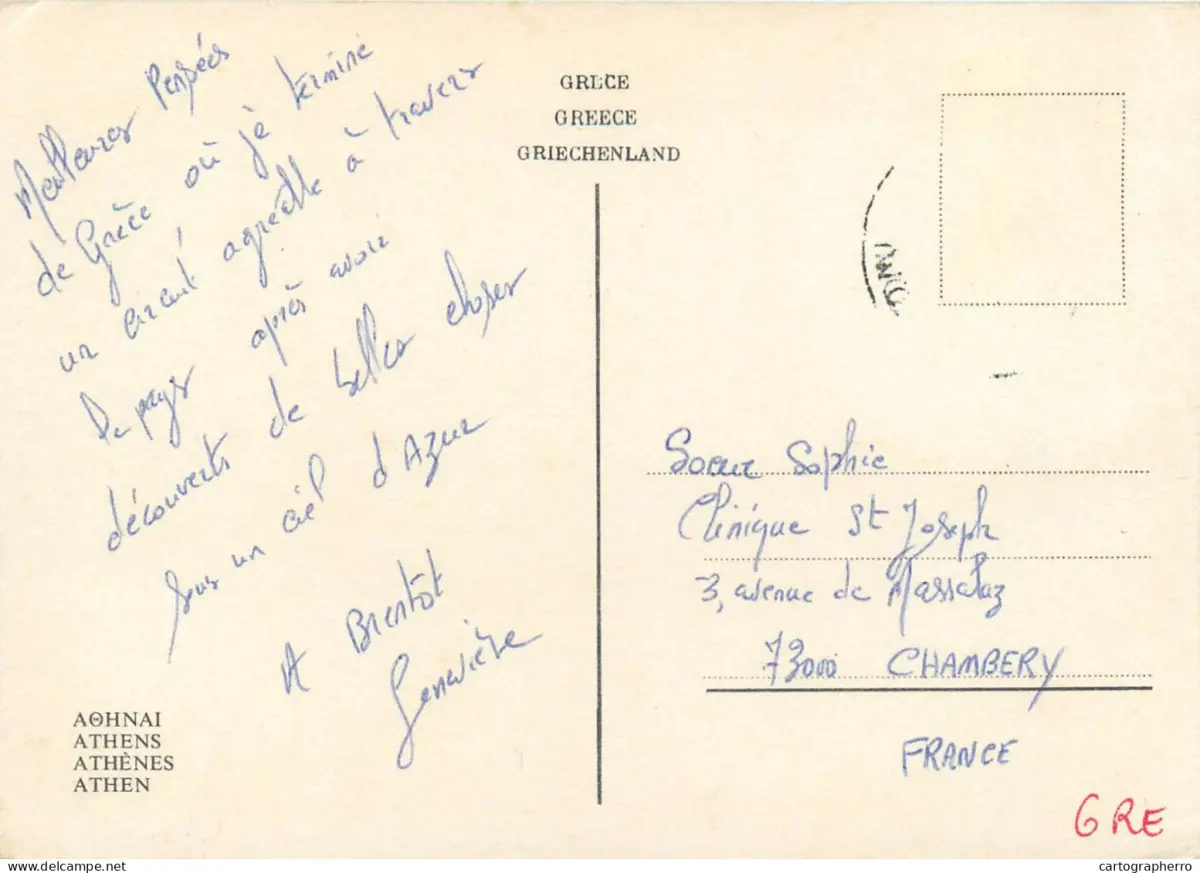 Meilleures Pensées
de Grèce où je termine
un circuit agréable à travers
le pays après avoir
découverts de belles choses
sous un ciel d'Azur
A Bientôt
Geneviève
ΑΘΗΝΑΙ
ATHENS
ATHÈNES
ATHEN
GRÈCE
GREECE
GRIECHENLAND
Soeur Sophie
Clinique St Joseph
3, avenue de
73000 CHAMBERY
FRANCE
GRE
cartographerro